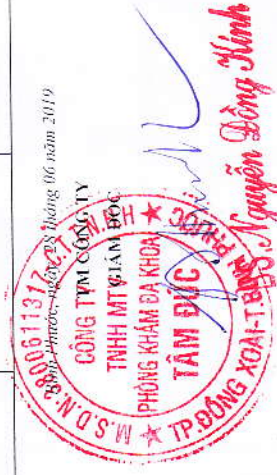 Bình Phước, ngày 28 tháng 06 năm 2019
TM CÔNG TY
GIÁM ĐỐC
M.S.D.N:3800611317-C.T.T.N.H.H
CÔNG TY
TNHH MTV
PHÒNG KHÁM ĐA KHOA
TÂM ĐỨC
TP.ĐỒNG XOÀI-T.BÌNH PHƯỚC
BS Nguyễn Đông Kính